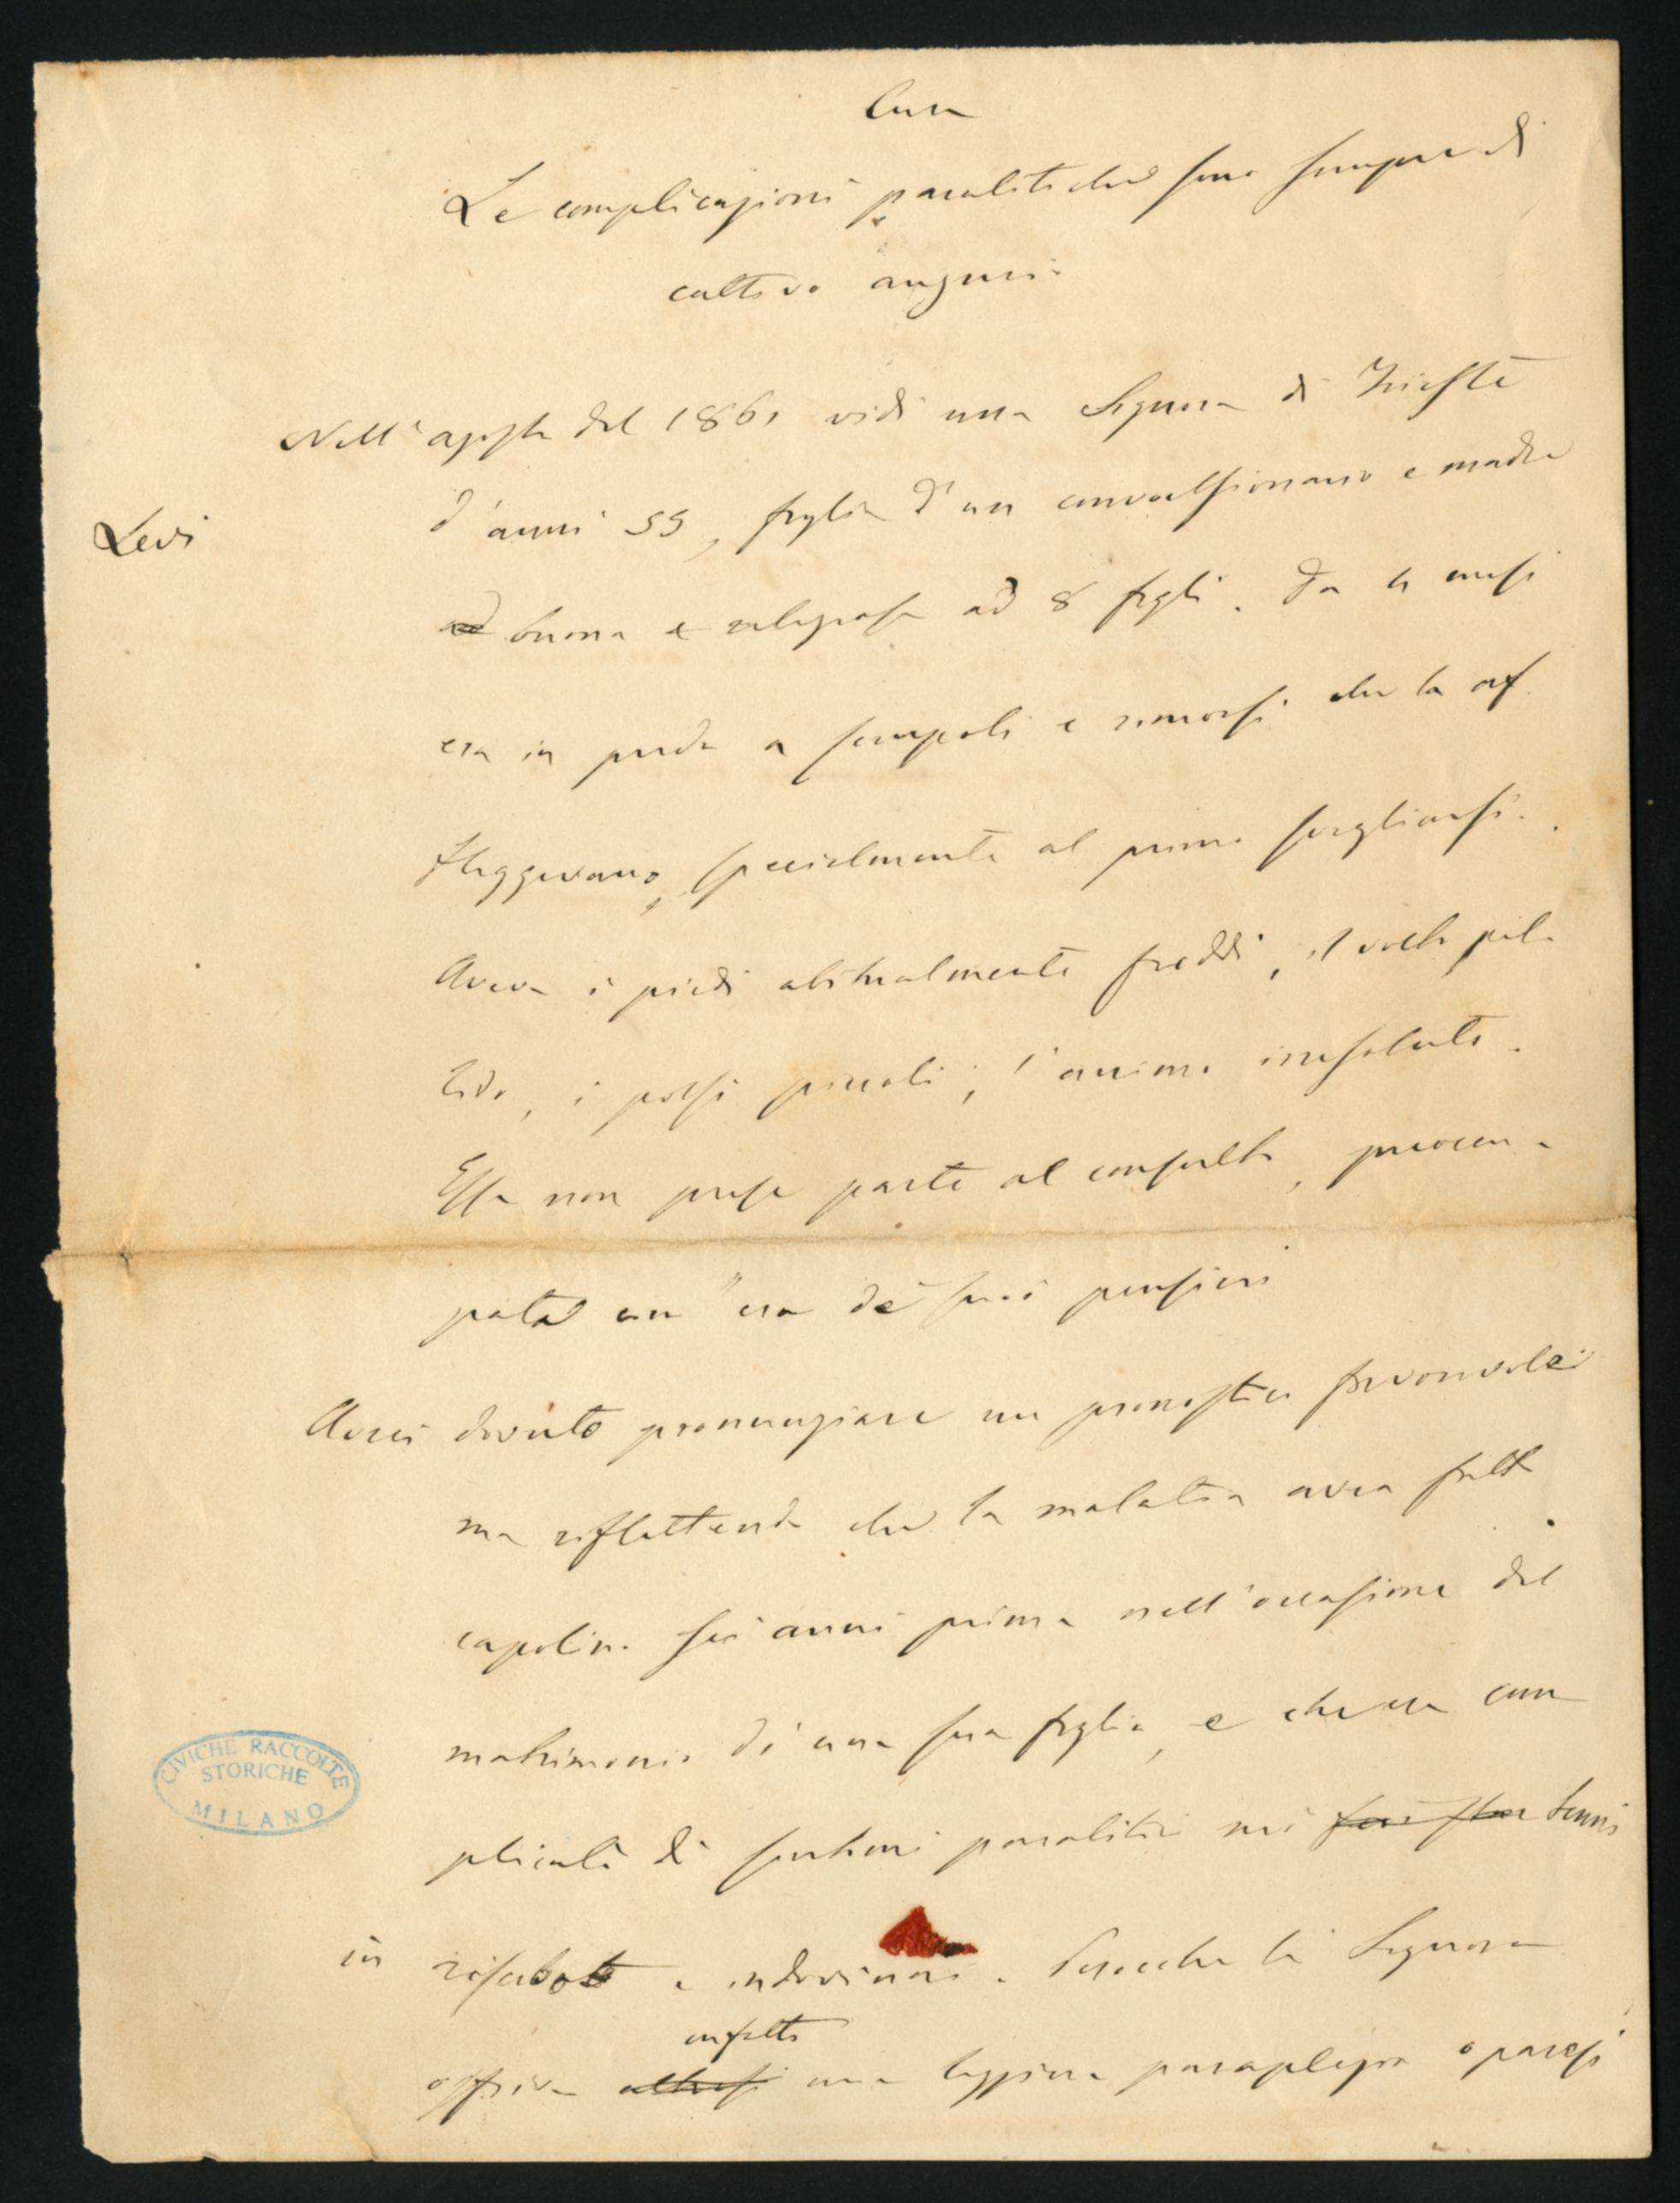 Cura
Le complicazioni paralitiche sono sempre di
cattivo augurio
Nell'agosto del 1861 vidi una Signora di Trieste
d'anni 55, figlia d'un convulsionario e madre
Levi
buona e religiosa ad 8 figli. Da 4 mesi
era in preda a scrupoli e rimorsi che la af
fliggevano, specialmente al primo svegliarsi.
Aveva i piedi abitualmente freddi, il volto pal
lido, i polsi piccoli, l'animo irresoluto.
Essa non prese parte al consulto, preoccu
pata com'era de' suoi pensieri
Avrei dovuto pronunziare un pronostico favorevole
ma riflettendo che la malatia avea fatto
capolino sei anni prima nell'occasione del
matrimonio di una sua figlia, e che era com
plicata di sintomi paralitici mi tenni
in riserbato e indovinai. Perocché la Signora
infatti
offriva altresì una leggiera paraplegia o paresi
CIVICHE RACCOLTE
STORICHE
MILANO